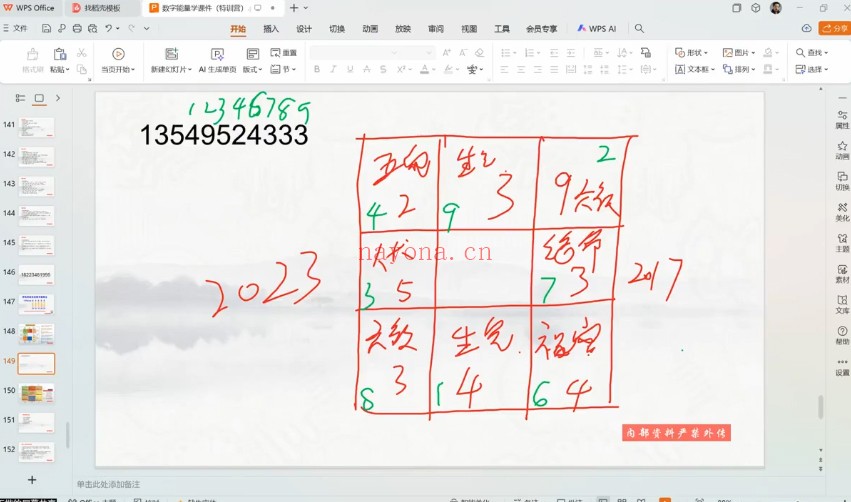 WPS Office
找稻壳模板
数字能量学课件（特训营）
文件
开始
插入
设计
切换
动画
放映
审阅
视图
工具
会员专享
WPS AI
分享
格式刷
粘贴
当页开始
新建幻灯片
AI 生成单页
版式
重置
节
形状
图片
文本框
排列
查找
选择
12346789
13549524333
生气
2
4 2
9 3
9 六煞
nayona.cn
绝命
2023
3 5
7 3
2017
六煞
生气
祸害
8 3
1 4
6 4
内部资料严禁外传
141
142
143
144
145
146
147
148
149
150
151
152
属性
动画
切换
美化
主题
素材
文库
帮助
设置
单击此处添加备注